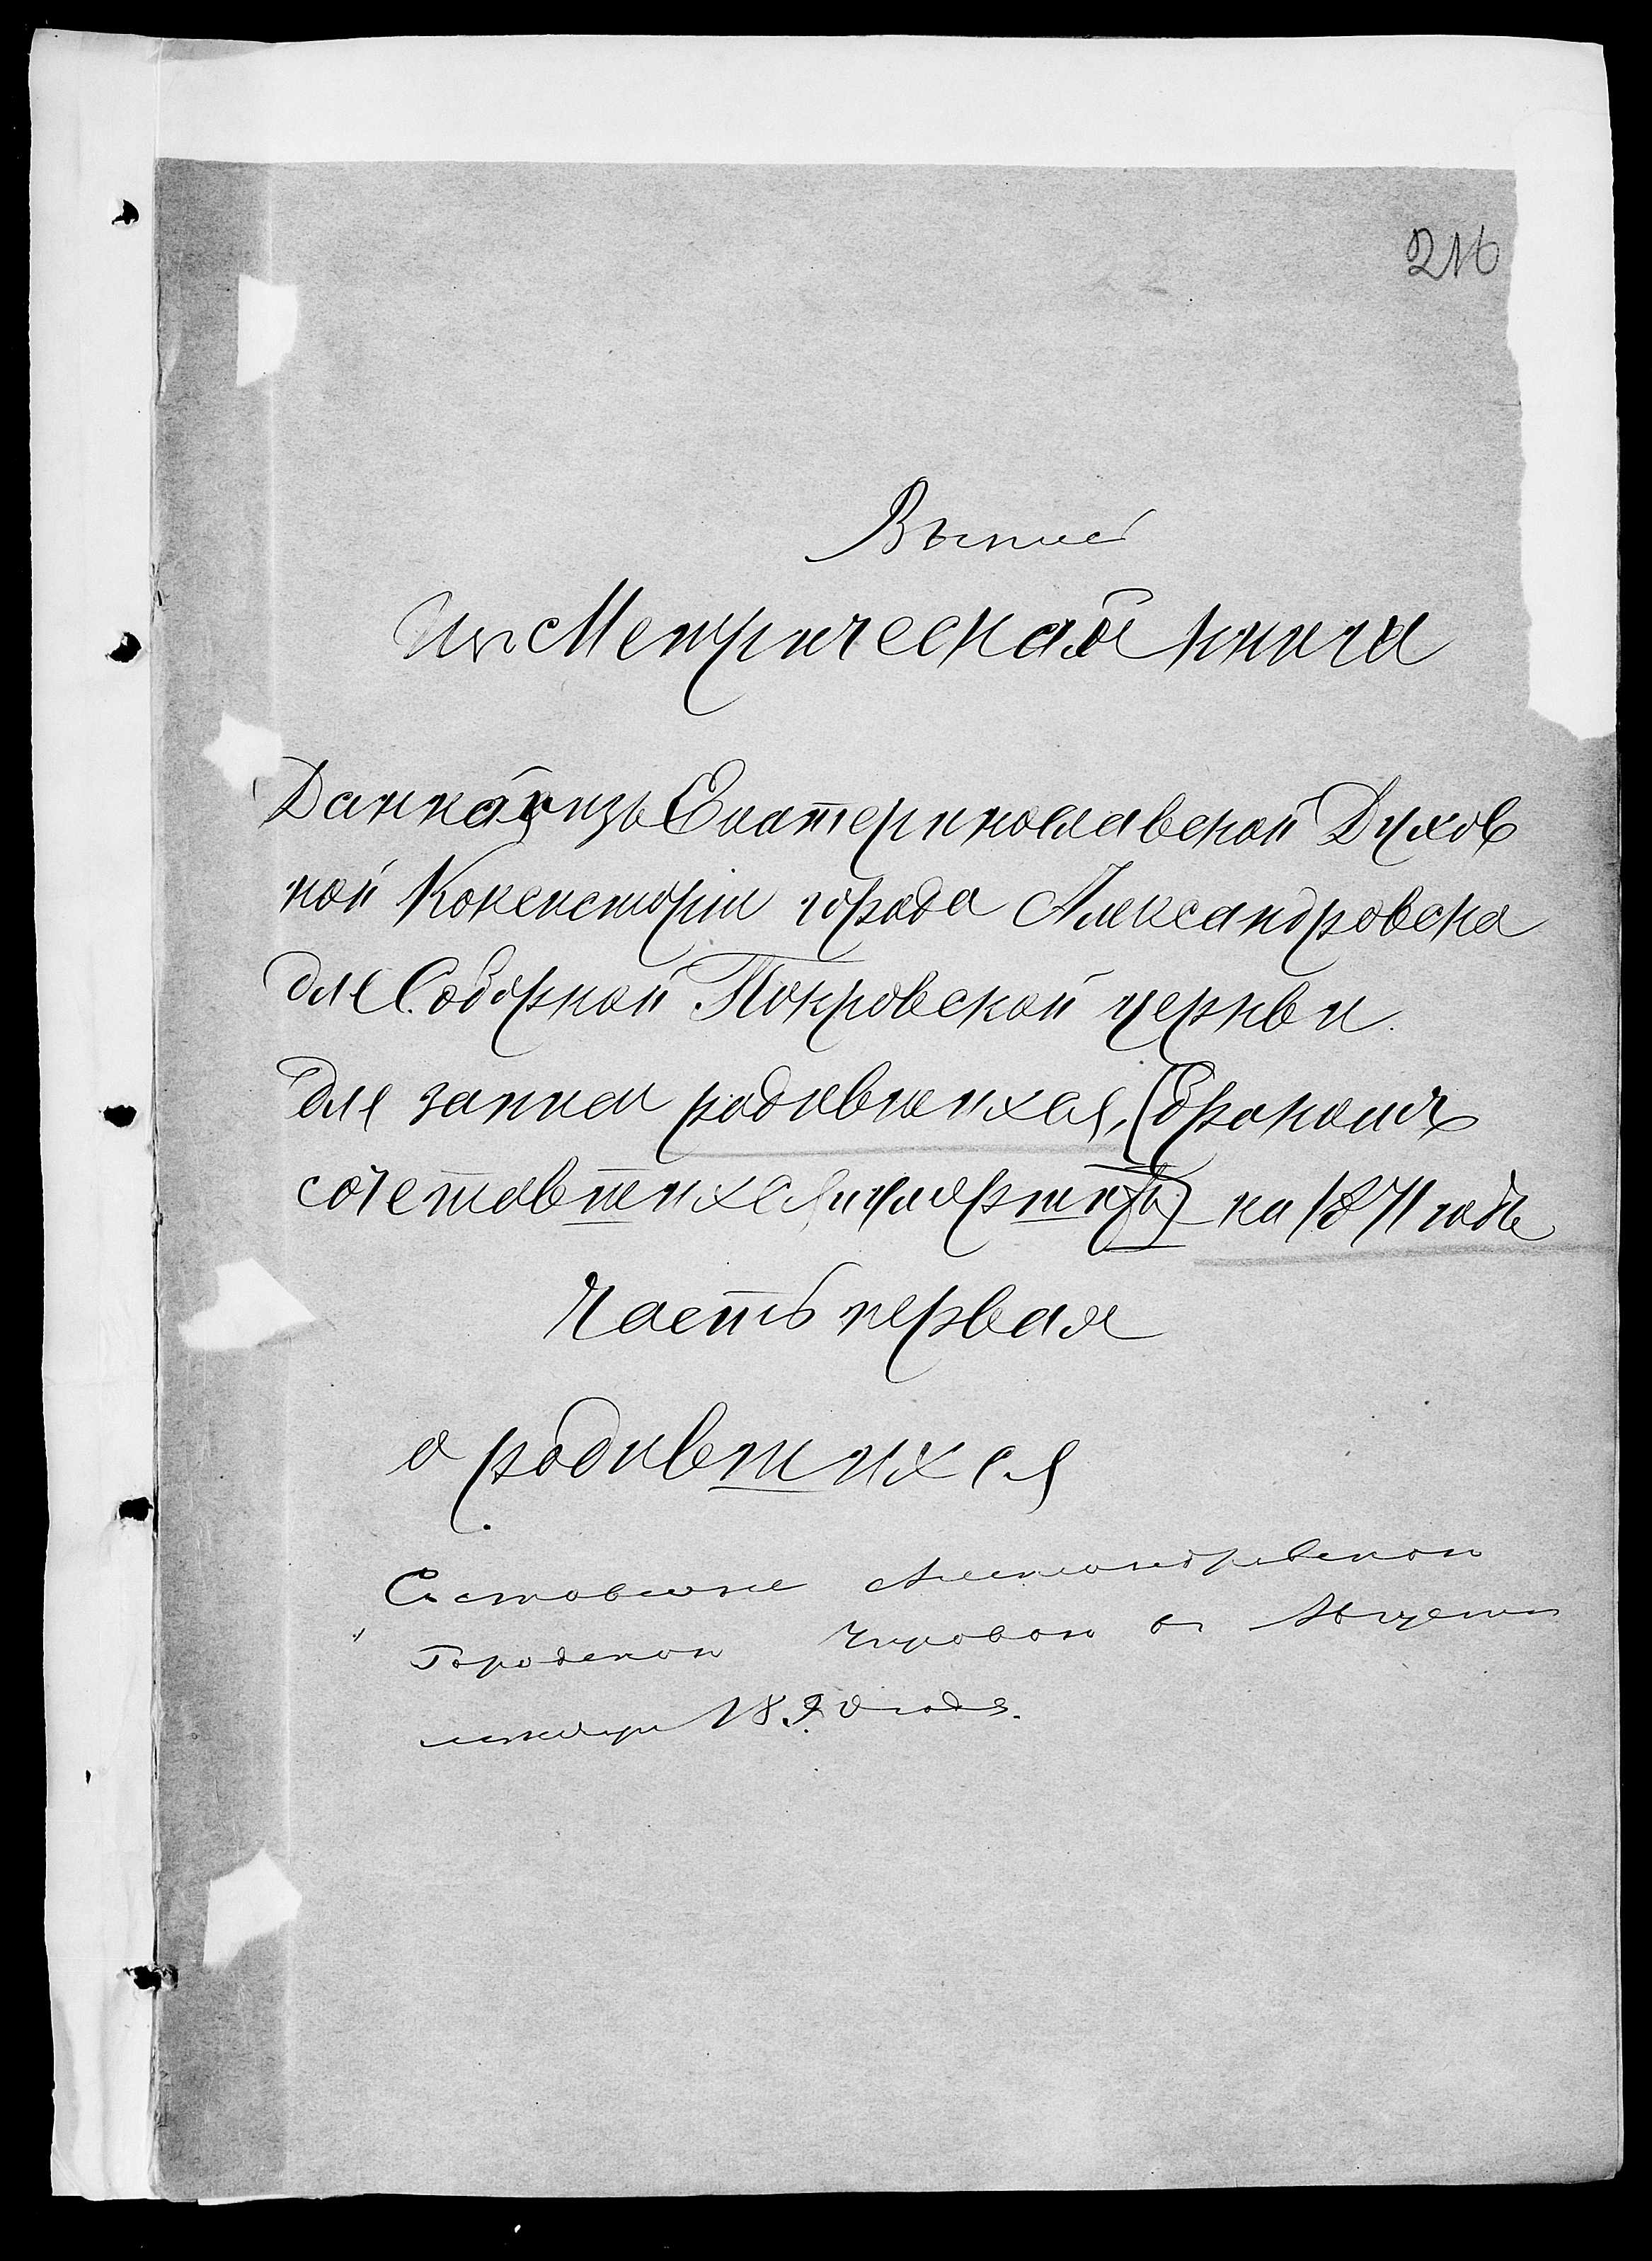 216
Выпись
изъ Метрической книги
Данной изъ Екатеринославской Духов
ной Консисторіи города Александровска
для Соборной Покровской церкви
для записи родившихся, (бракомъ
сочетавшихся и умершихъ) на 1871 годъ
Часть первая
о родившихся
Составлена Александровскою
Городскою Управою въ
1890 года.